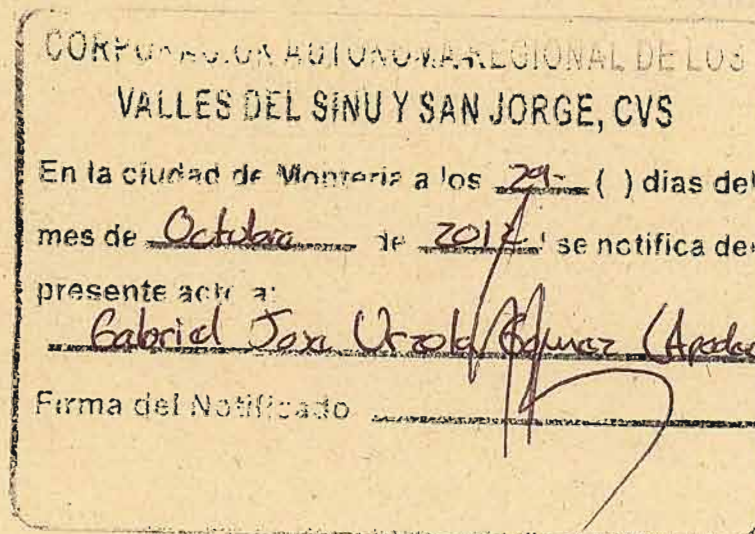 CORPORACION AUTONOMA REGIONAL DE LOS
VALLES DEL SINU Y SAN JORGE, CVS
En la ciudad de Monteria a los 29 ( ) dias del
mes de Octubre de 2012 se notifica del
presente acto a:
Gabriel Jose Urzola (Apodac
Firma del Notificado